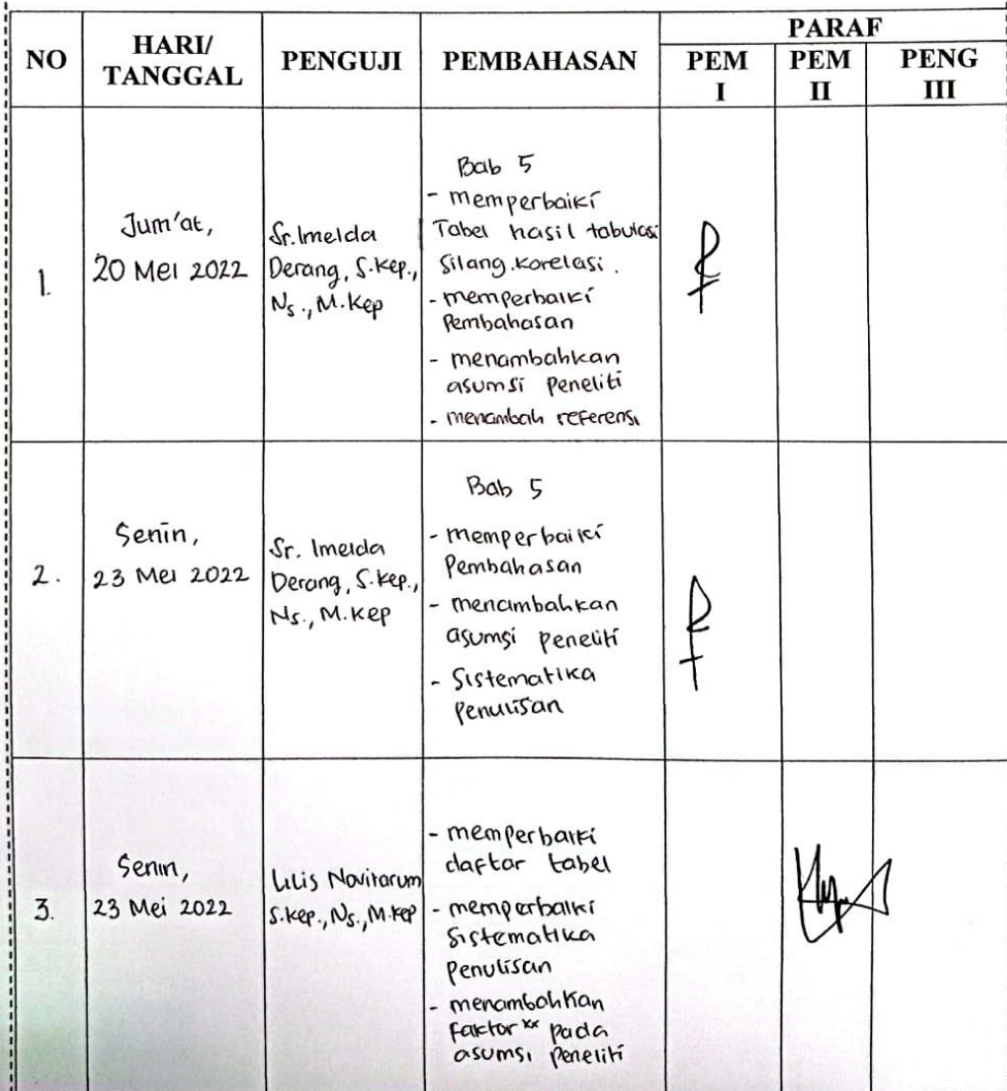 NO
HARI/
TANGGAL
PENGUJI
PEMBAHASAN
PARAF
PEM
I
PEM
II
PENG
III
1.
Jum'at,
20 Mei 2022
Sr. Imelda
Derang, S.Kep.,
Ns., M.Kep
Bab 5
- memperbaiki
Tabel hasil tabulasi
Silang. korelasi.
- memperbaiki
Pembahasan
- menambahkan
asumsi Peneliti
- menambah referensi
2.
Senin,
23 Mei 2022
Sr. Imelda
Derang, S.Kep.,
Ns., M.Kep
Bab 5
- memperbaiki
Pembahasan
- menambahkan
asumsi peneliti
- Sistematika
Penulisan
3.
Senin,
23 Mei 2022
Lilis Novitarum
S.Kep., Ns., M.Kep
- memperbaiki
daftar tabel
- memperbaiki
Sistematika
Penulisan
- menambahkan
Faktor pada
asumsi Peneliti